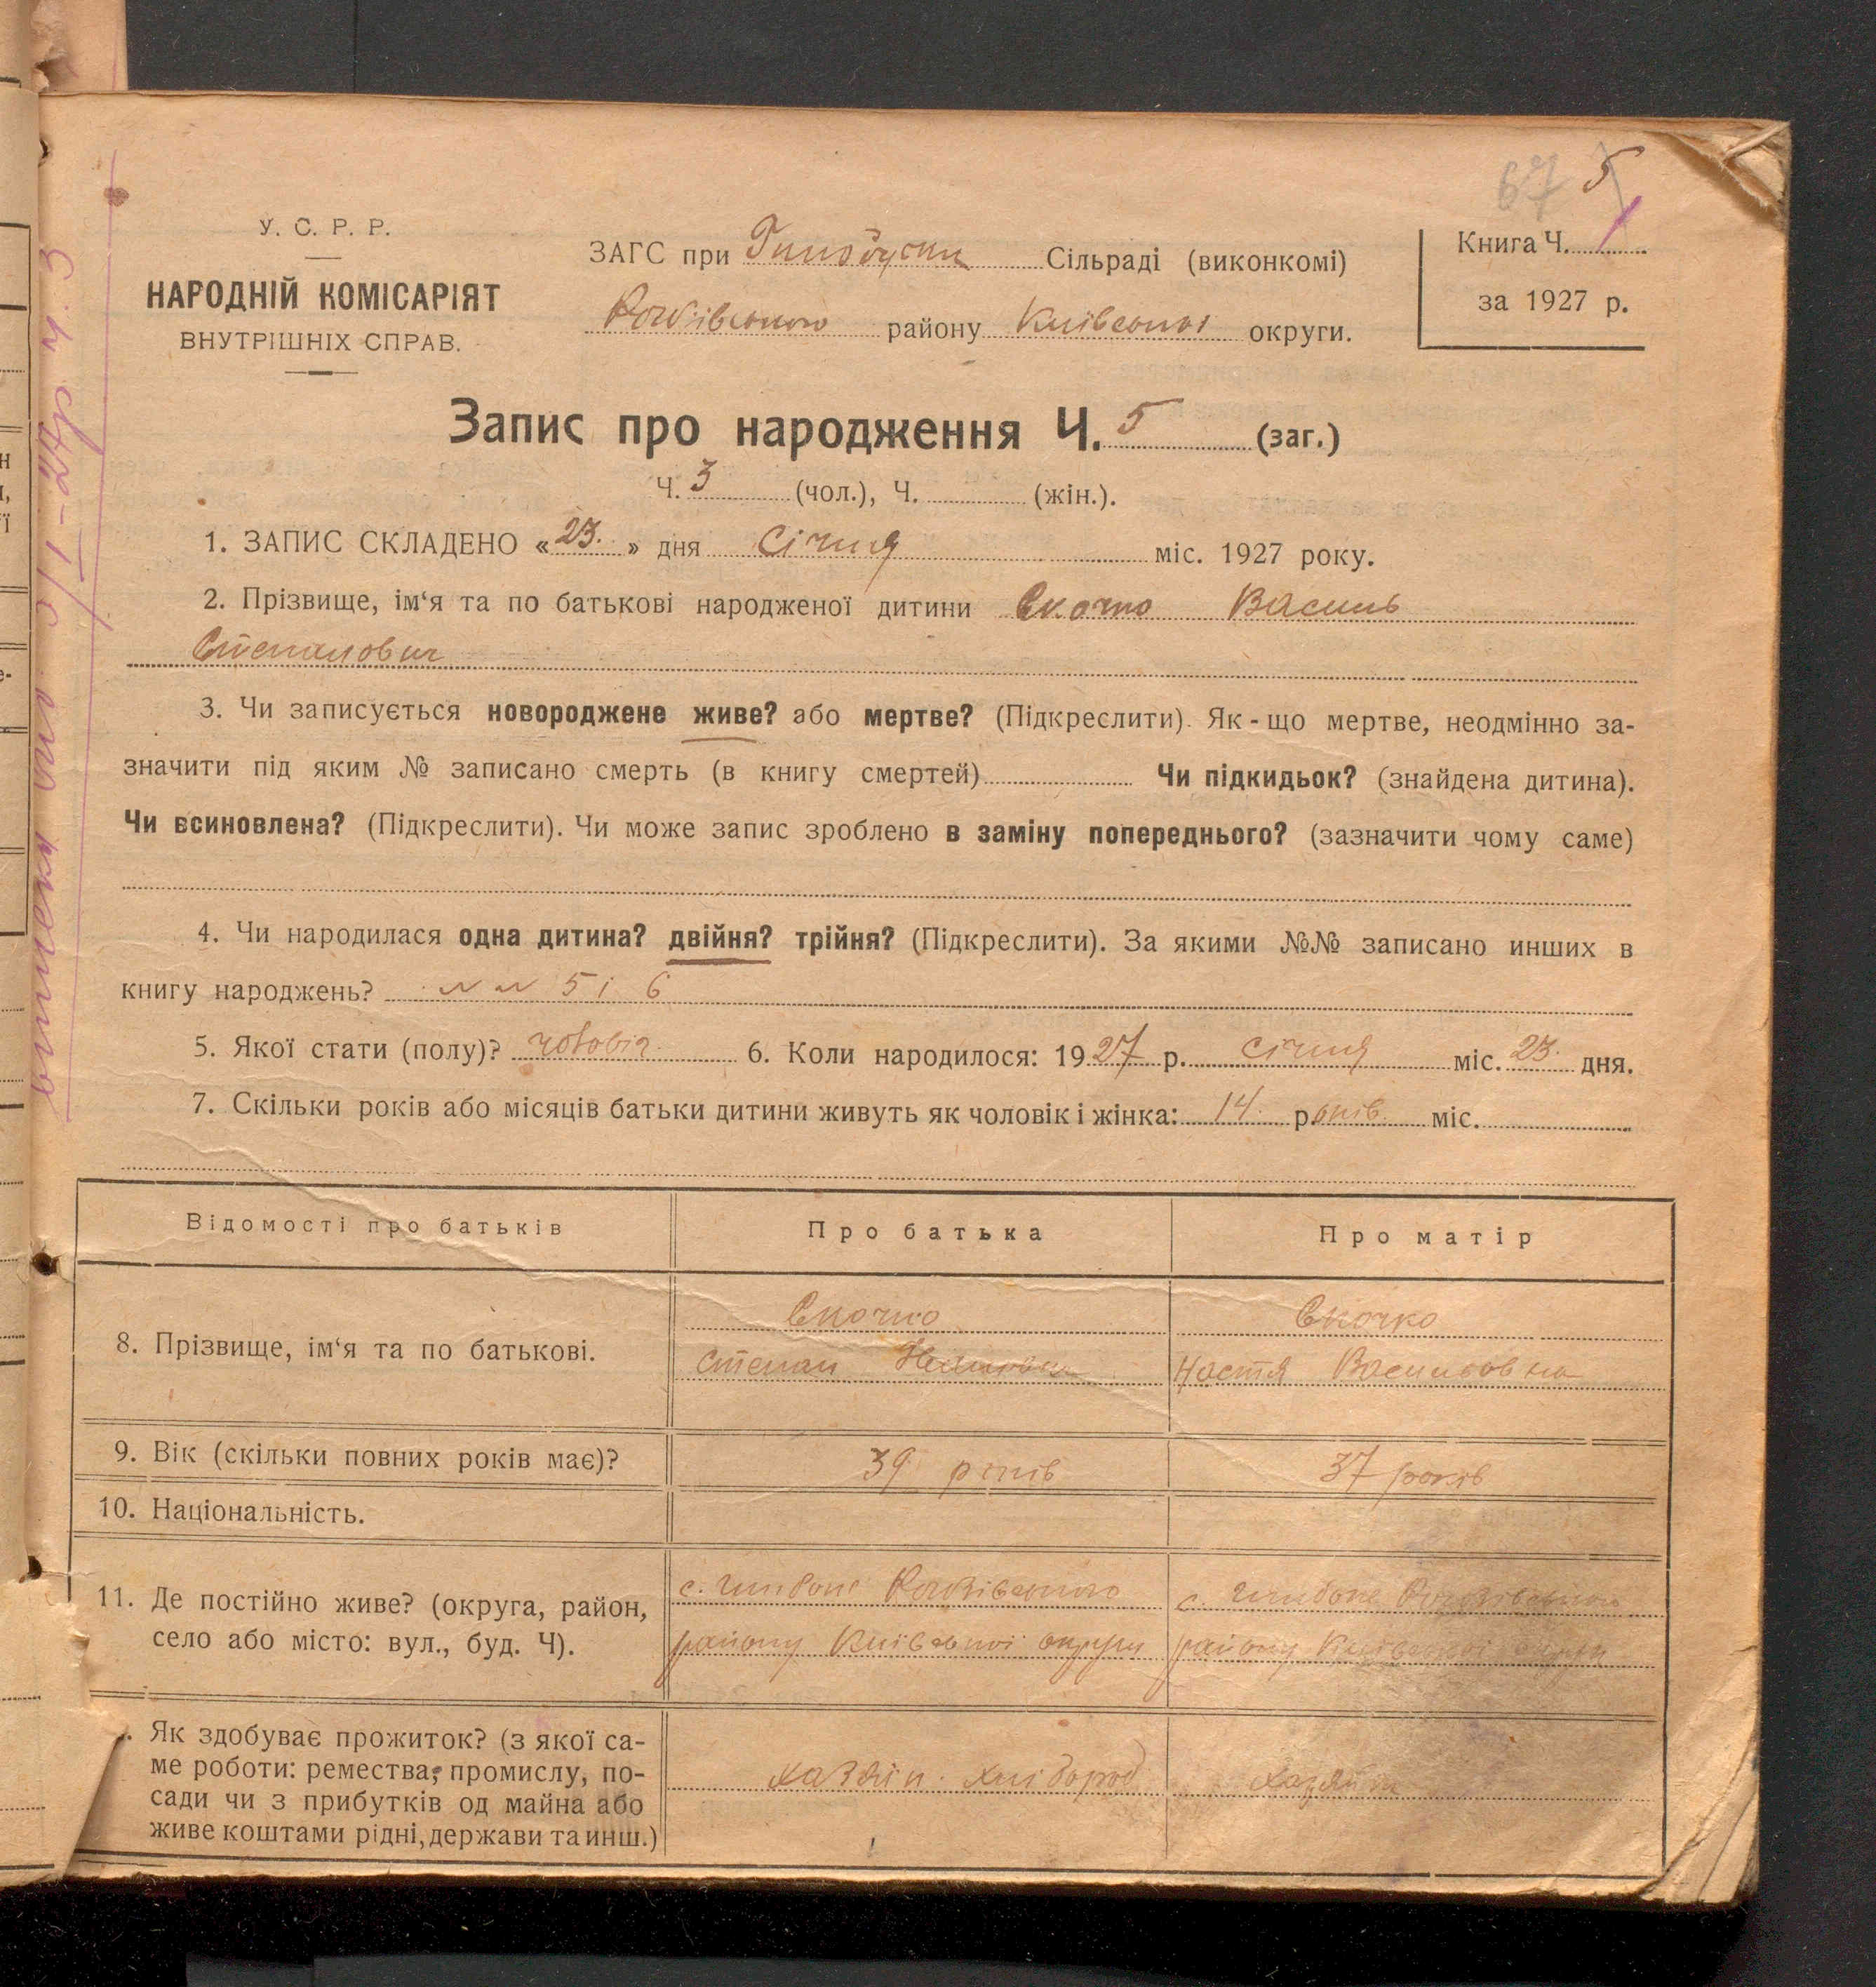 67 5
У. С. Р. Р.
НАРОДНІЙ КОМІСАРІЯТ
ВНУТРІШНІХ СПРАВ.
ЗАГС при Сільраді (виконкомі)
району Київської округи.
Книга Ч. 1
за 1927 р.
Запис про народження Ч. 5 (заг.)
Ч. 3 (чол.), Ч. (жін.).
1. ЗАПИС СКЛАДЕНО «23.» дня Січня міс. 1927 року.
2. Прізвище, ім‘я та по батькові народженої дитини Скочко Василь
Степанович
3. Чи записується новороджене живе? або мертве? (Підкреслити). Як-що мертве, неодмінно за-
значити під яким № записано смерть (в книгу смертей) Чи підкидьок? (знайдена дитина).
Чи всиновлена? (Підкреслити). Чи може запис зроблено в заміну попереднього? (зазначити чому саме)
4. Чи народилася одна дитина? двійня? трійня? (Підкреслити). За якими №№ записано инших в
книгу народжень? 5 і 6
5. Якої стати (полу)? 6. Коли народилося: 1927 р. січня міс. 23. дня.
7. Скільки років або місяців батьки дитини живуть як чоловік і жінка: 14. років. міс.
Відомості про батьків Про батька Про матір
Скочко Скочко
8. Прізвище, ім‘я та по батькові. Степан Настя Васильовна
9. Вік (скільки повних років має)? 39 років 37 років
10. Національність.
11. Де постійно живе? (округа, район,
село або місто: вул., буд. Ч).
району Київської округи району Київської округи
Як здобуває прожиток? (з якої са-
ме роботи: ремества, промислу, по-
сади чи з прибутків од майна або
живе коштами рідні, держави та инш.)
хазяїн. хлібороб